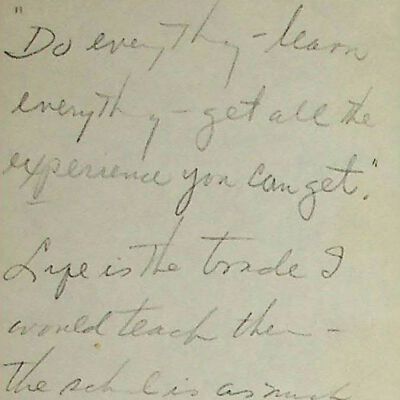 "Do everything - learn
everything - get all the
experience you can get."
Life is the trade I
would teach them -
the school is as much